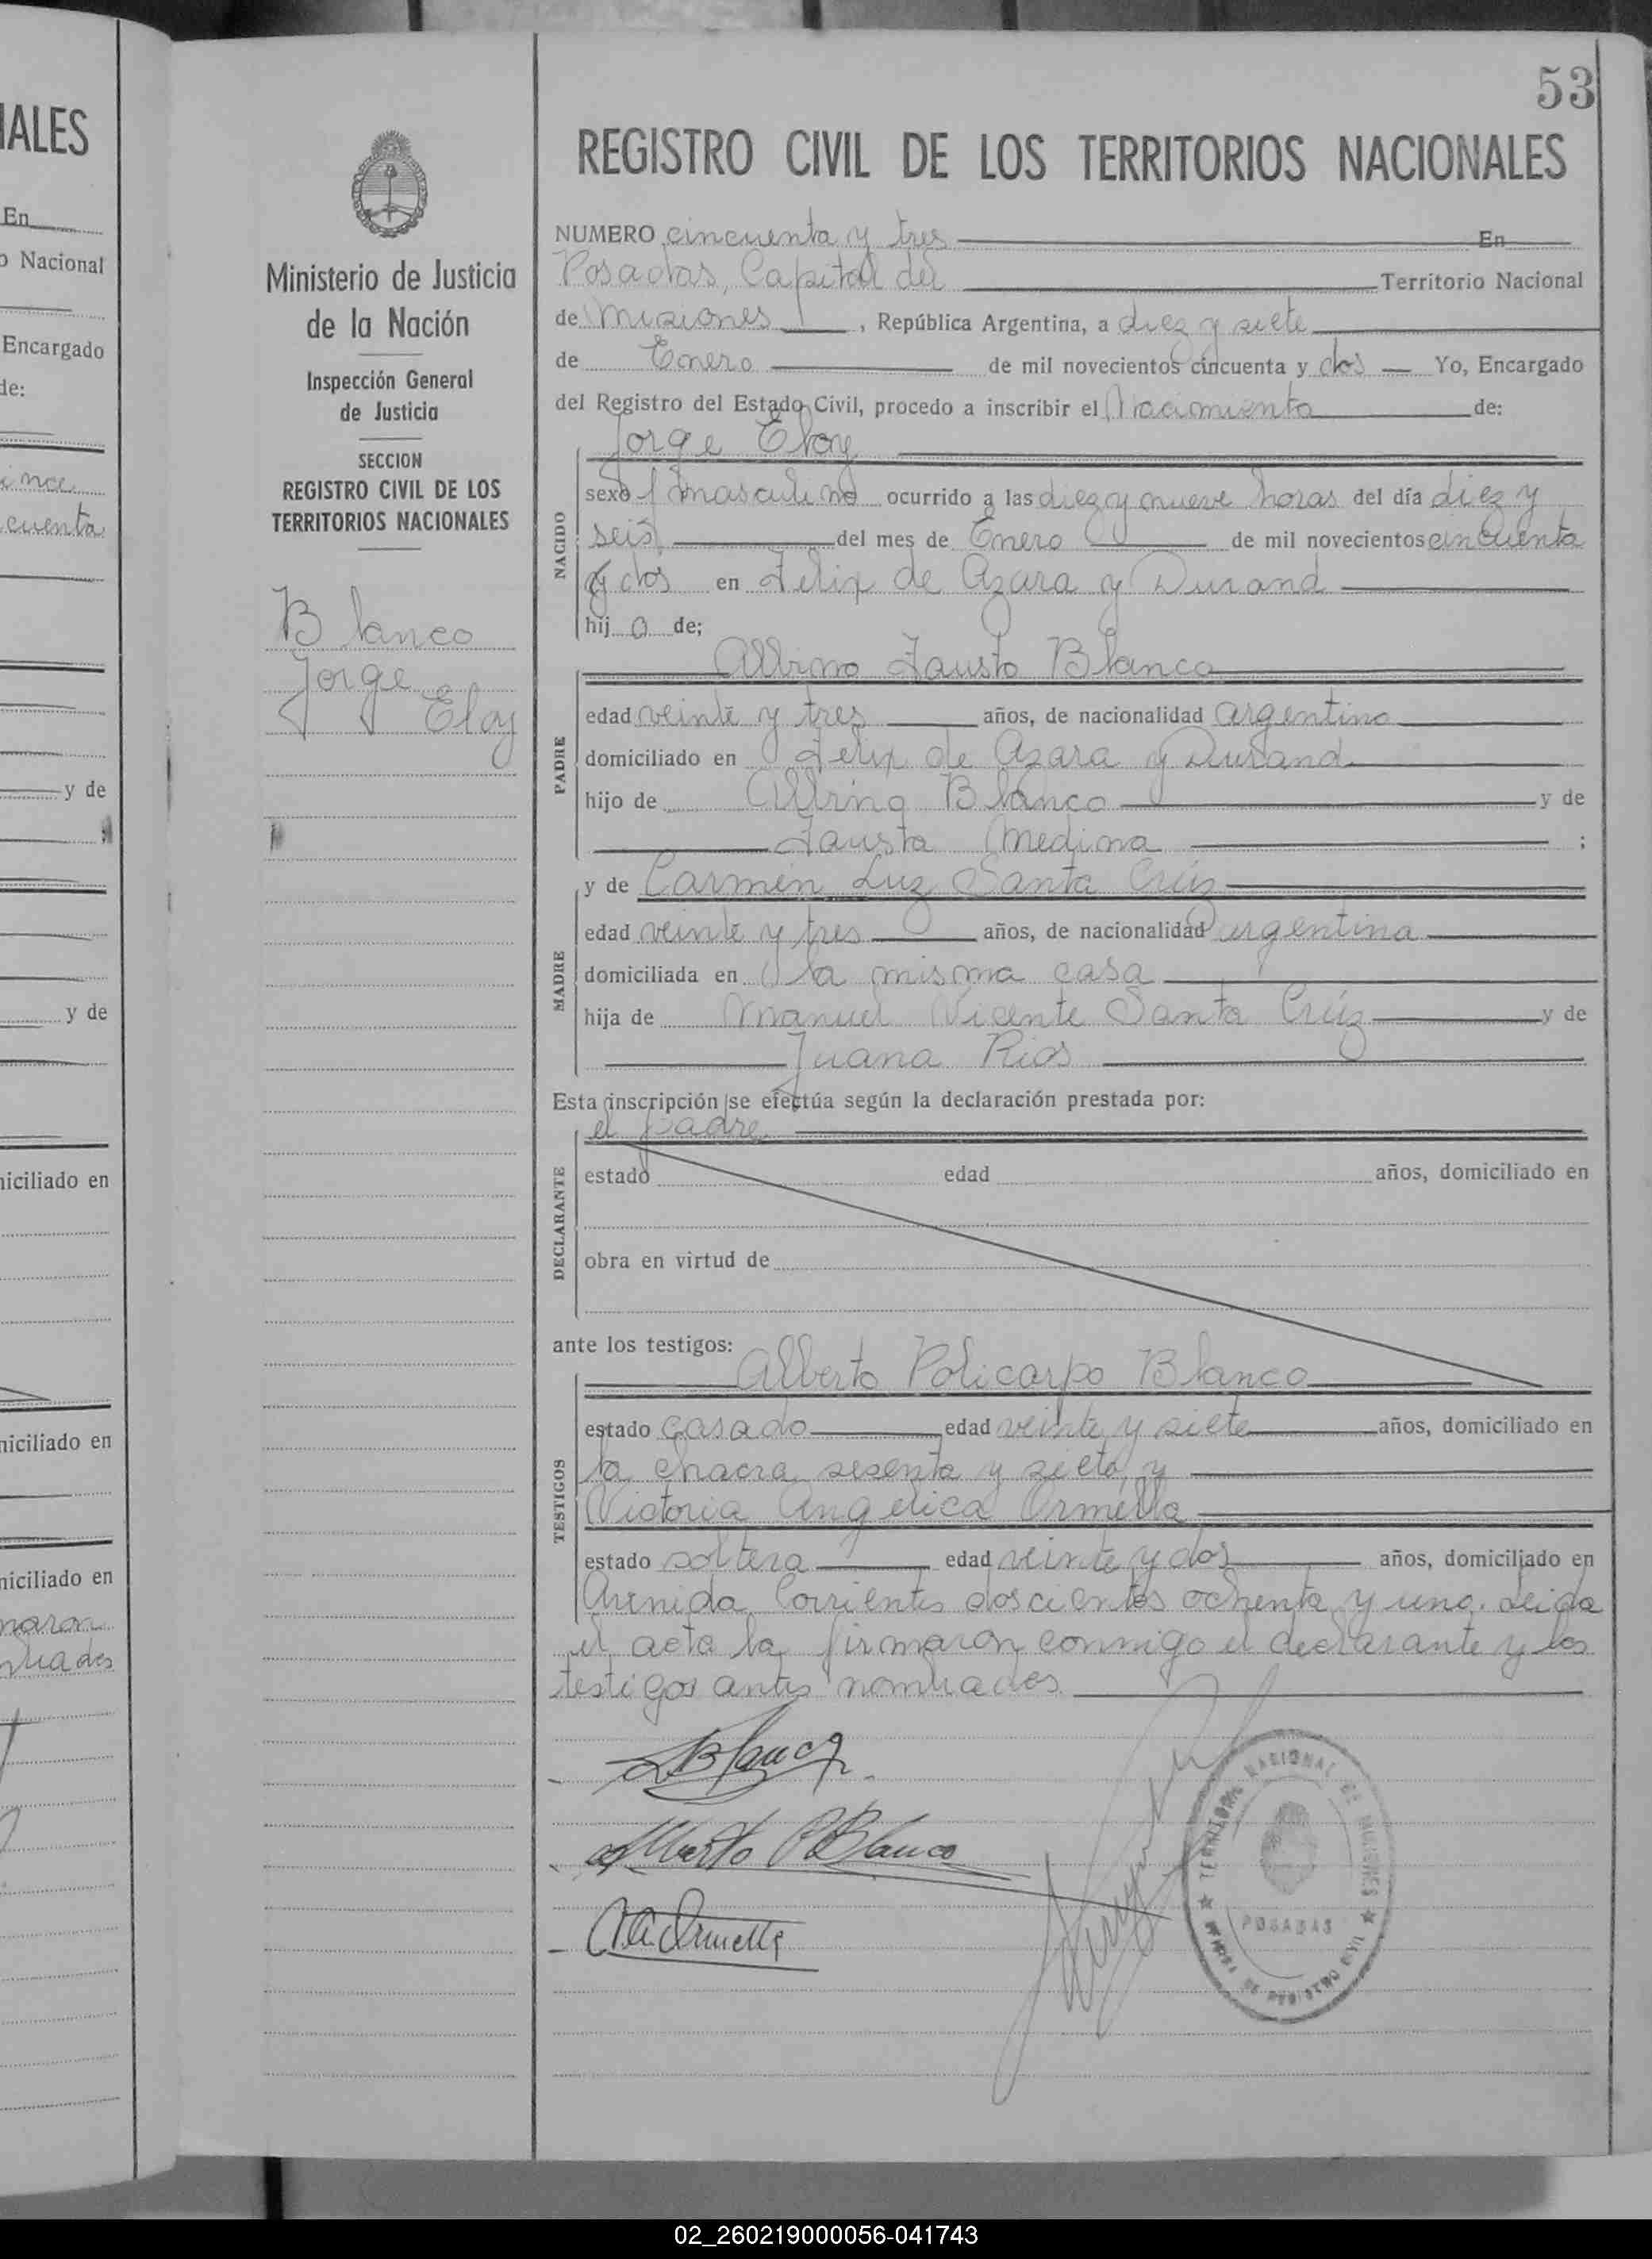 53
REGISTRO CIVIL DE LOS TERRITORIOS NACIONALES
IALES
En
o Nacional
Encargado
de:
ince
cuenta
y de
y de
niciliado en
niciliado en
niciliado en
maron
Ministerio de Justicia
de la Nación
Inspección General
de Justicia
SECCION
REGISTRO CIVIL DE LOS
TERRITORIOS NACIONALES
Blanco
Jorge
Eloy
NUMERO cincuenta y tres En
Posadas, Capital del Territorio Nacional
de Misiones, República Argentina, a diez y siete
de Enero de mil novecientos cincuenta y dos Yo, Encargado
del Registro del Estado Civil, procedo a inscribir el Nacimiento de:
Jorge Eloy
NACIDO
sexo masculino ocurrido a las diez y nueve horas del día diez y
seis del mes de Enero de mil novecientos cincuenta
y dos en Felix de Azara y Durand
hij o de;
PADRE
Albino Fausto Blanco
edad veinte y tres años, de nacionalidad argentino
domiciliado en Felix de Azara y Durand
hijo de Albino Blanco y de
Fausta Medina ;
MADRE
y de Carmen Luz Santa Crúz
edad veinte y tres años, de nacionalidad argentina
domiciliada en la misma casa
hija de Manuel Vicente Santa Crúz y de
Juana Rios
Esta inscripción se efectúa según la declaración prestada por:
DECLARANTE
el padre
estado edad años, domiciliado en
obra en virtud de
ante los testigos:
TESTIGOS
Alberto Policarpo Blanco
estado casado edad veinte y siete años, domiciliado en
la chacra sesenta y siete, y
Victoria Angelica Ormella
estado soltera edad veinte y dos años, domiciliado en
Avenida Corrientes doscientos ochenta y uno. Leida
el acta la firmaron conmigo el declarante y los
testigos antes nombrados.
Blanco
Alberto P Blanco
V. A. Ormella
TERRITORIO NACIONAL DE MISIONES
POSADAS
02_260219000056-041743